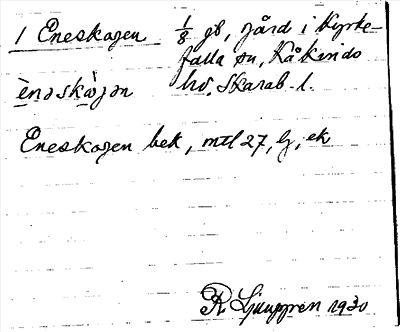 1 Eneskogen 1/8 gb, gård i Kyrke-
falla sn, Kåkinds
ènəskògən hd, Skarab. l.
Eneskogen bek, mtl 27, lj, ek
R Ljunggren 1930